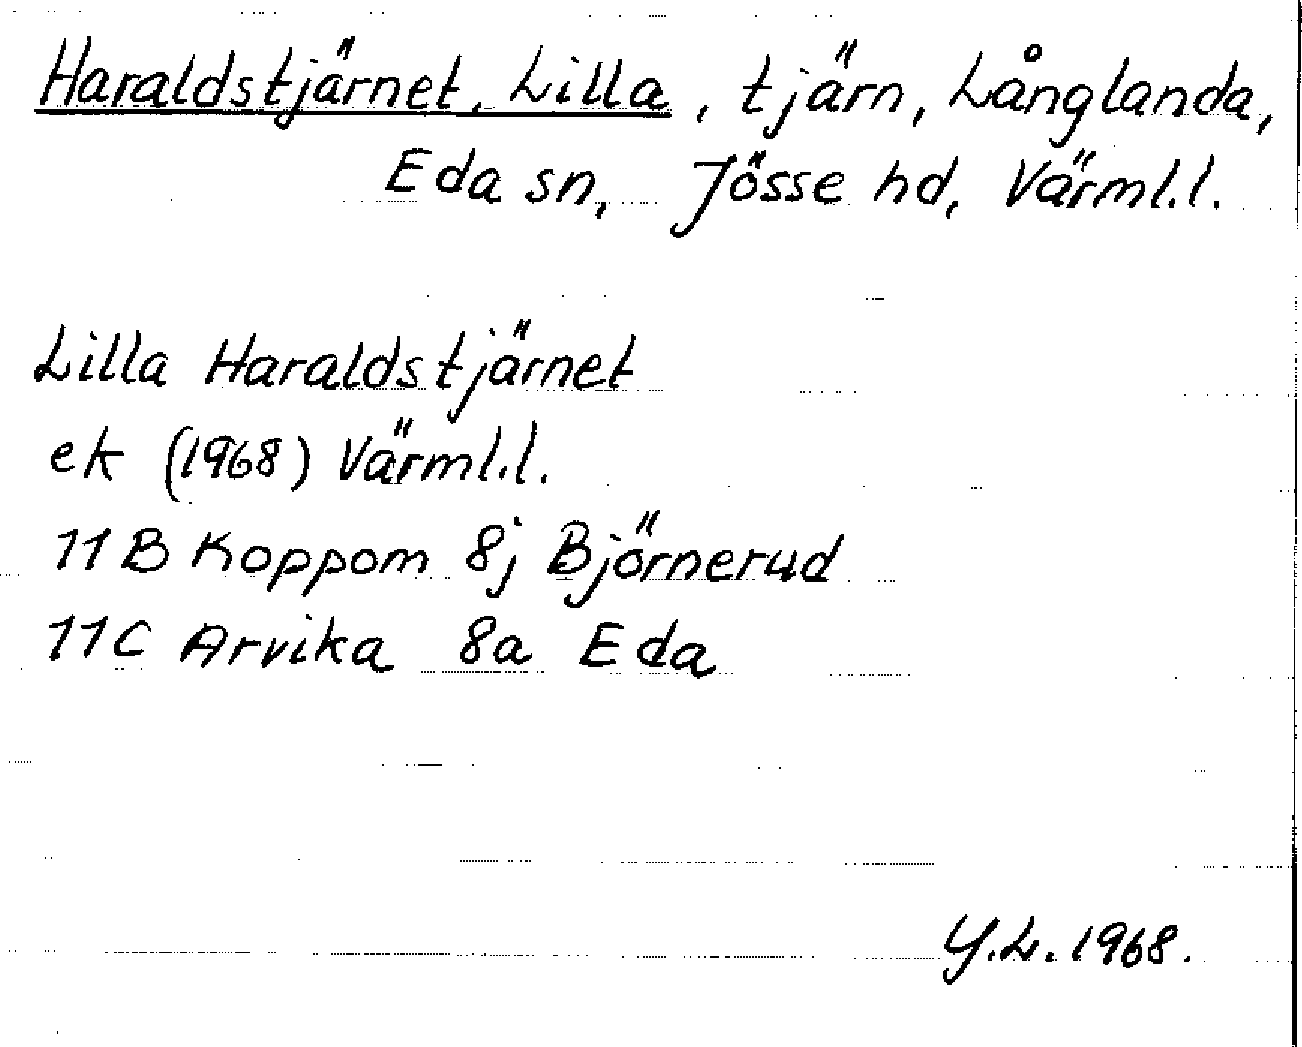 Haraldstjärnet, Lilla, tjärn, Långlanda,
Eda sn, Jösse hd, Värml.l.
Lilla Haraldstjärnet
ek (1968) Värml.l.
11B Koppom 8j Björnerud
11C Arvika 8a Eda
Y.L. 1968.